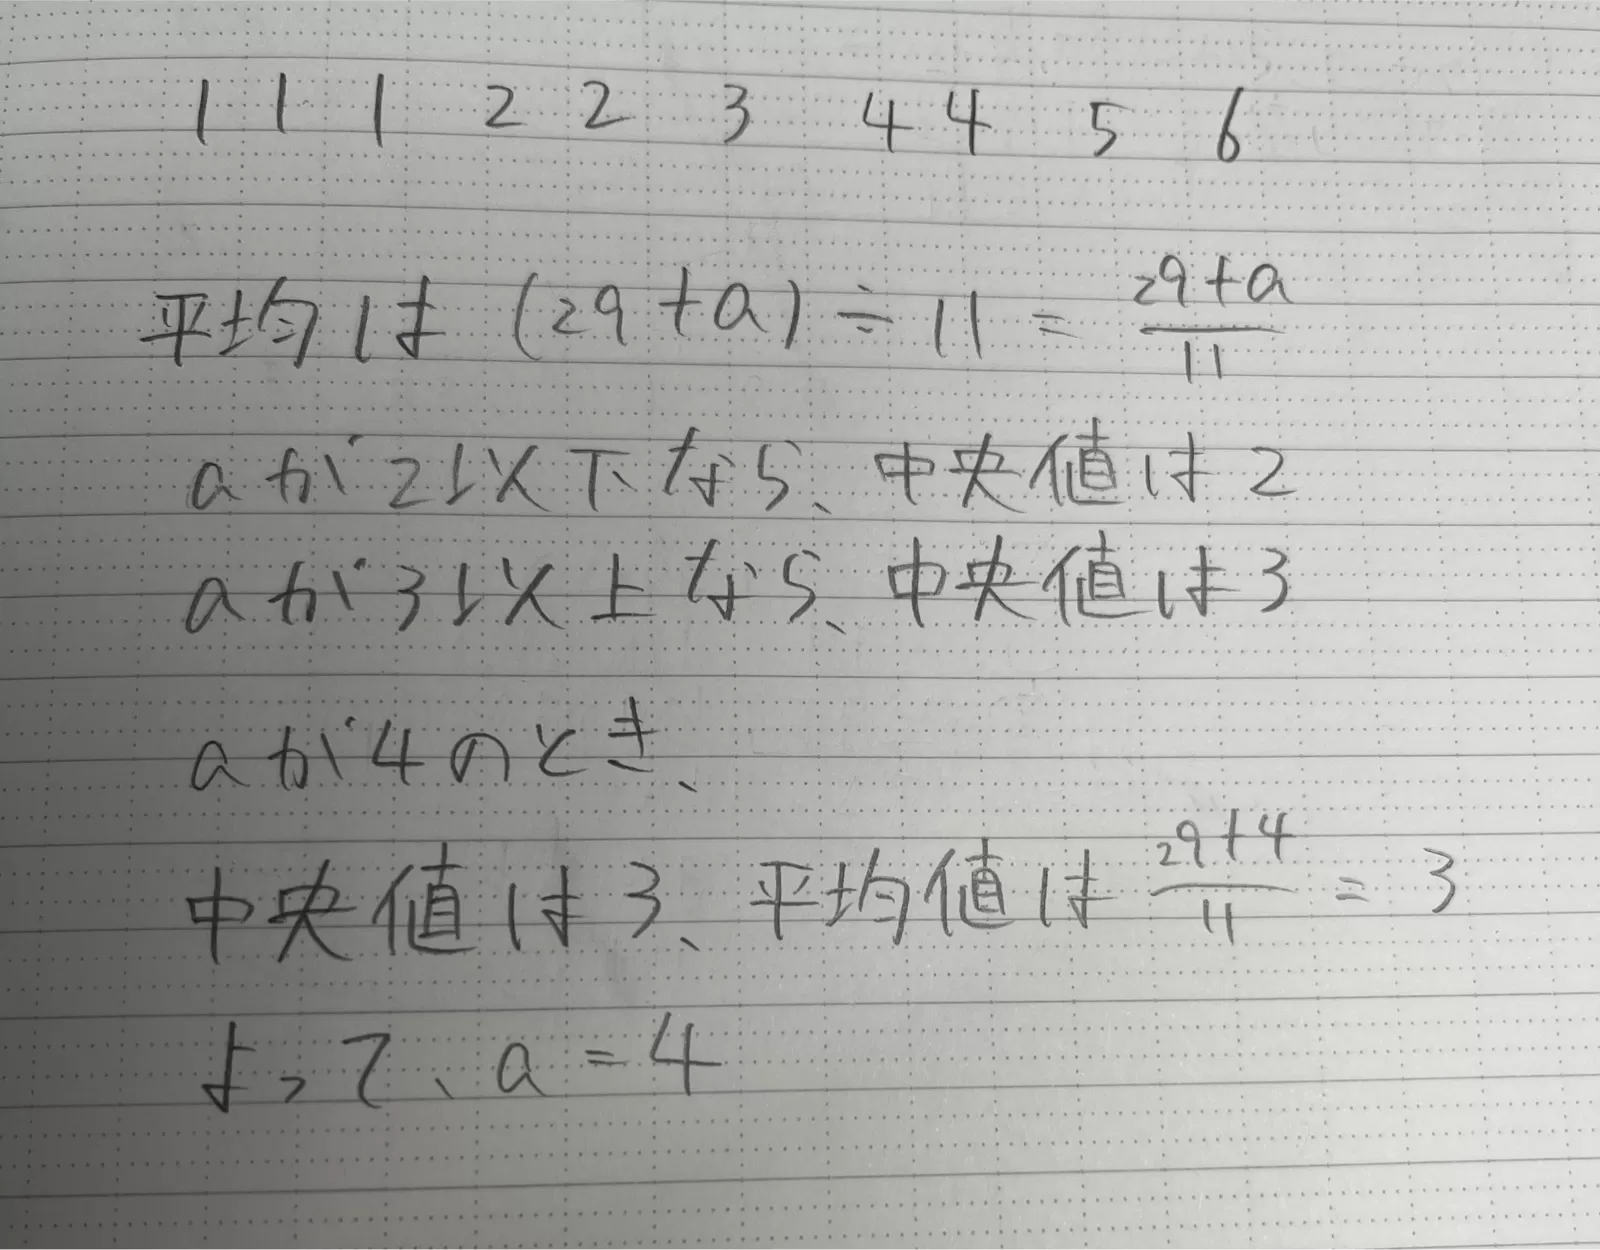 1 1 1 2 2 3 4 4 5 6
平均は (29+a) ÷ 11 = \frac{29+a}{11}
aが2以下なら、中央値は2
aが3以上なら、中央値は3
aが4のとき、
中央値は3、平均値は \frac{29+4}{11} = 3
よって、a=4